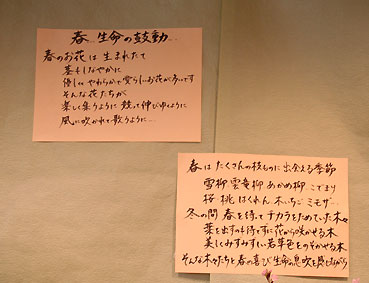 春… 生命の鼓動…
春のお花は 生まれたて
茎もしなやかに
優しく やわらかで愛らしいお花が多いです
そんな花たちが
楽しく集うように 競って伸びゆくように
風に吹かれて歌うように…
春は たくさんの枝ものに 出会える季節
雪柳 雲竜柳 あかめ柳 こでまり
桜 桃 はくれん 木いちご ミモザ…
冬の間 春を待って チカラをためていた木々
葉を出すのも待てずに 花から咲かせる木
美しくみずみずしい若芽色をのぞかせる木
そんな木々たちと 春の喜び 生命の息吹を感じながら